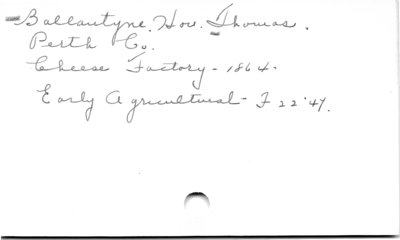 Ballantyne. Hon. Thomas.
Perth Co.
Cheese Factory - 1864.
Early Agricultural - F 22 '47.